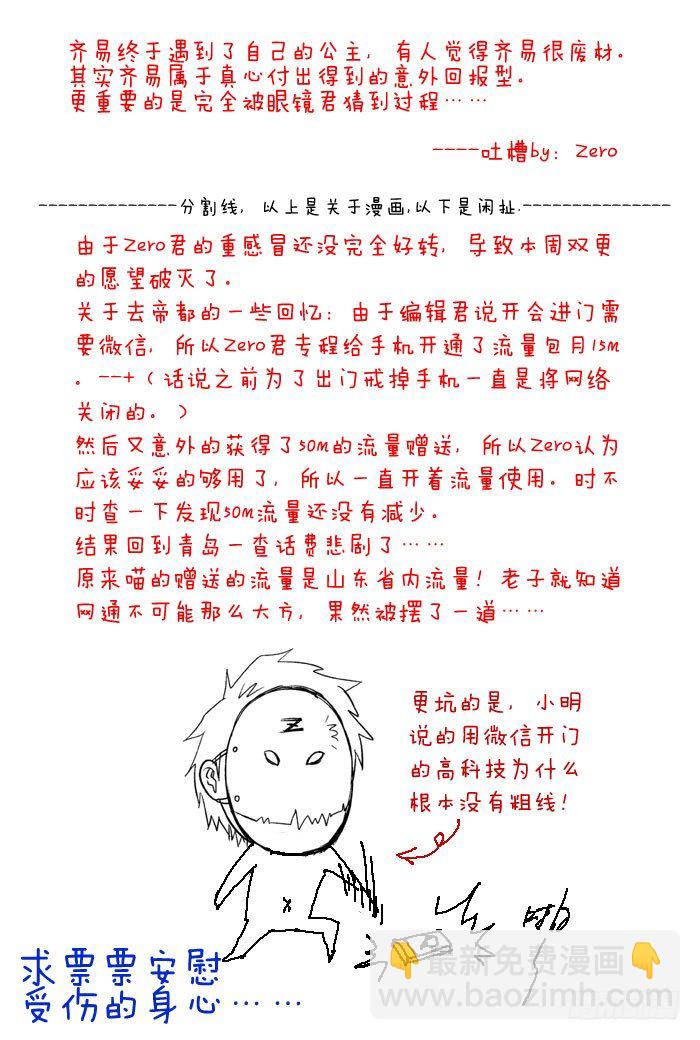 齐易终于遇到了自己的公主，有人觉得齐易很废材。
其实齐易属于真心付出得到的意外回报型。
更重要的是完全被眼镜君猜到过程……
----吐槽by：Zero
--------------分割线，以上是关于漫画,以下是闲扯.---------------
由于Zero君的重感冒还没完全好转，导致本周双更
的愿望破灭了。
关于去帝都的一些回忆：由于编辑君说开会进门需
要微信，所以Zero君专程给手机开通了流量包月15m
。--+（话说之前为了出门戒掉手机一直是将网络
关闭的。）
然后又意外的获得了50m的流量赠送，所以Zero认为
应该妥妥的够用了，所以一直开着流量使用。时不
时查一下发现50m流量还没有减少。
结果回到青岛一查话费悲剧了……
原来喵的赠送的流量是山东省内流量！老子就知道
网通不可能那么大方，果然被摆了一道……
Z
更坑的是，小明
说的用微信开门
的高科技为什么
根本没有粗线！
求票票安慰
受伤的身心……
最新免费漫画
www.baozimh.com